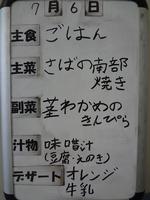 7月6日
主食 ごはん
主菜 さばの南部
焼き
副菜 茎わかめの
きんぴら
汁物 味噌汁
(豆腐・えのき)
デザート オレンジ
牛乳